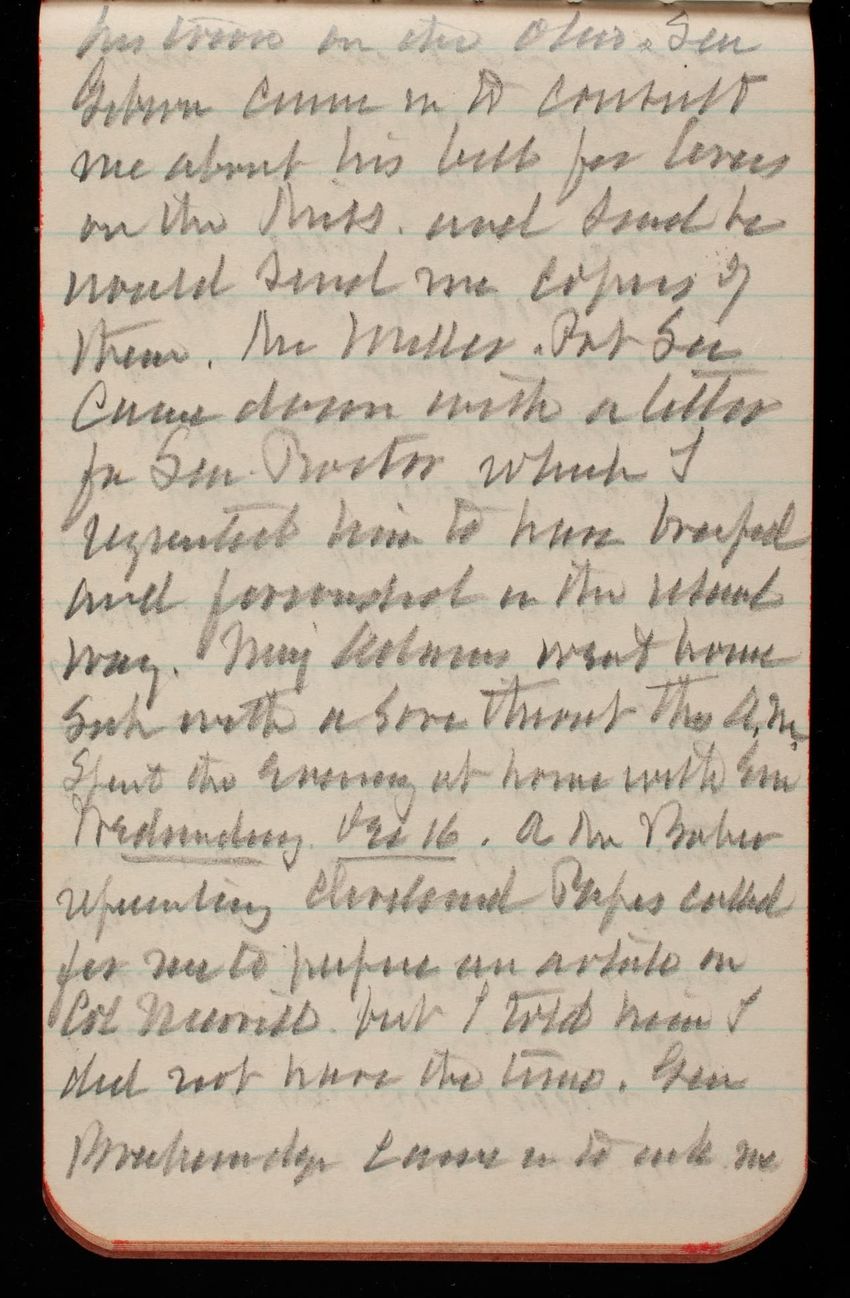 his work on the Ohio. Sen
Gibson came in to consult
me about his bill for levees
on the Miss. and said he
would send me copies of
them. Mr Miller. Pvt Sec
Came down with a letter
fr Sen Proctor which I
requested him to have briefed
and forwarded in the usual
way. Maj Adams went home
Sick with a Sore throat this A.M.
Spent the Evening at home with Em
Wednesday Dec 16. A Mr Baker
representing Cleveland Papers called
for me to prepare an article on
Col Merrill but I told him I
did not have the time. Gen
Breckenridge came in to ask me